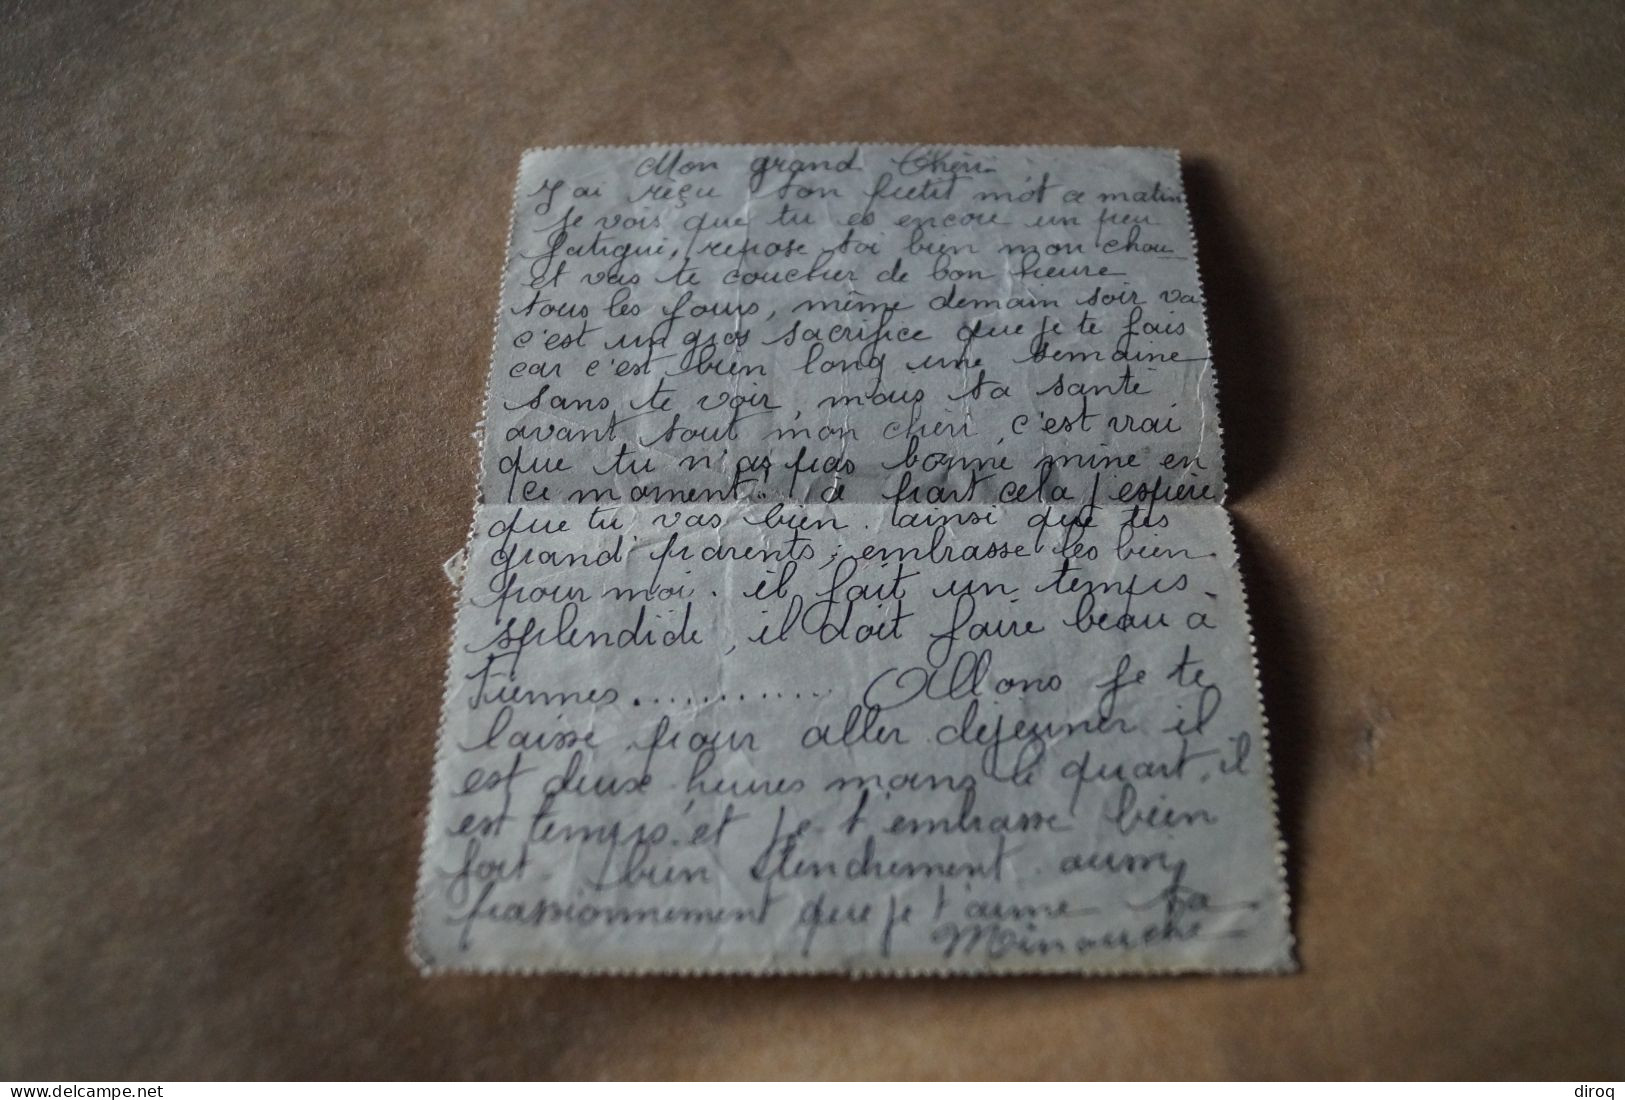 Mon grand Chéri.
J'ai rèçu ton petit môt ce matin
Je vois que tu es encore un peu
fatigué, repose toi bien mon chou
et vas te coucher de bon heure
tous les jours, même demain soir va
c'est un gros sacrifice que je te fais
car c'est bien long une semaine
sans te voir, mais ta santé
avant tout mon chéri, c'est vrai
que tu n'as pas bonne mine en
ce moment! à part cela j'espère
que tu vas bien. ainsi que tes
grand' parents; embrasse les bien
pour moi. il fait un temps
splendide, il doit faire beau à
............ Allons je te
laisse pour aller déjeuner il
est deux heures moins le quart. il
est temps. et je t'embrasse bien
fort. bien tendrement. aussi
passionnement que je t'aime Ta
Minouche
www.delcampe.net
diroq